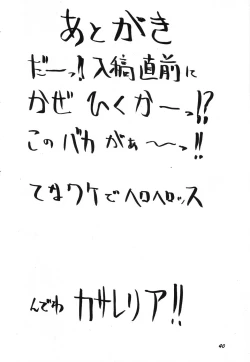 あとがき
だーっ!入稿直前に
かぜひくかーっ!?
このバカがぁ～～っ!!
てなワケでヘロヘロッス
んでわ カサレリア!!
40